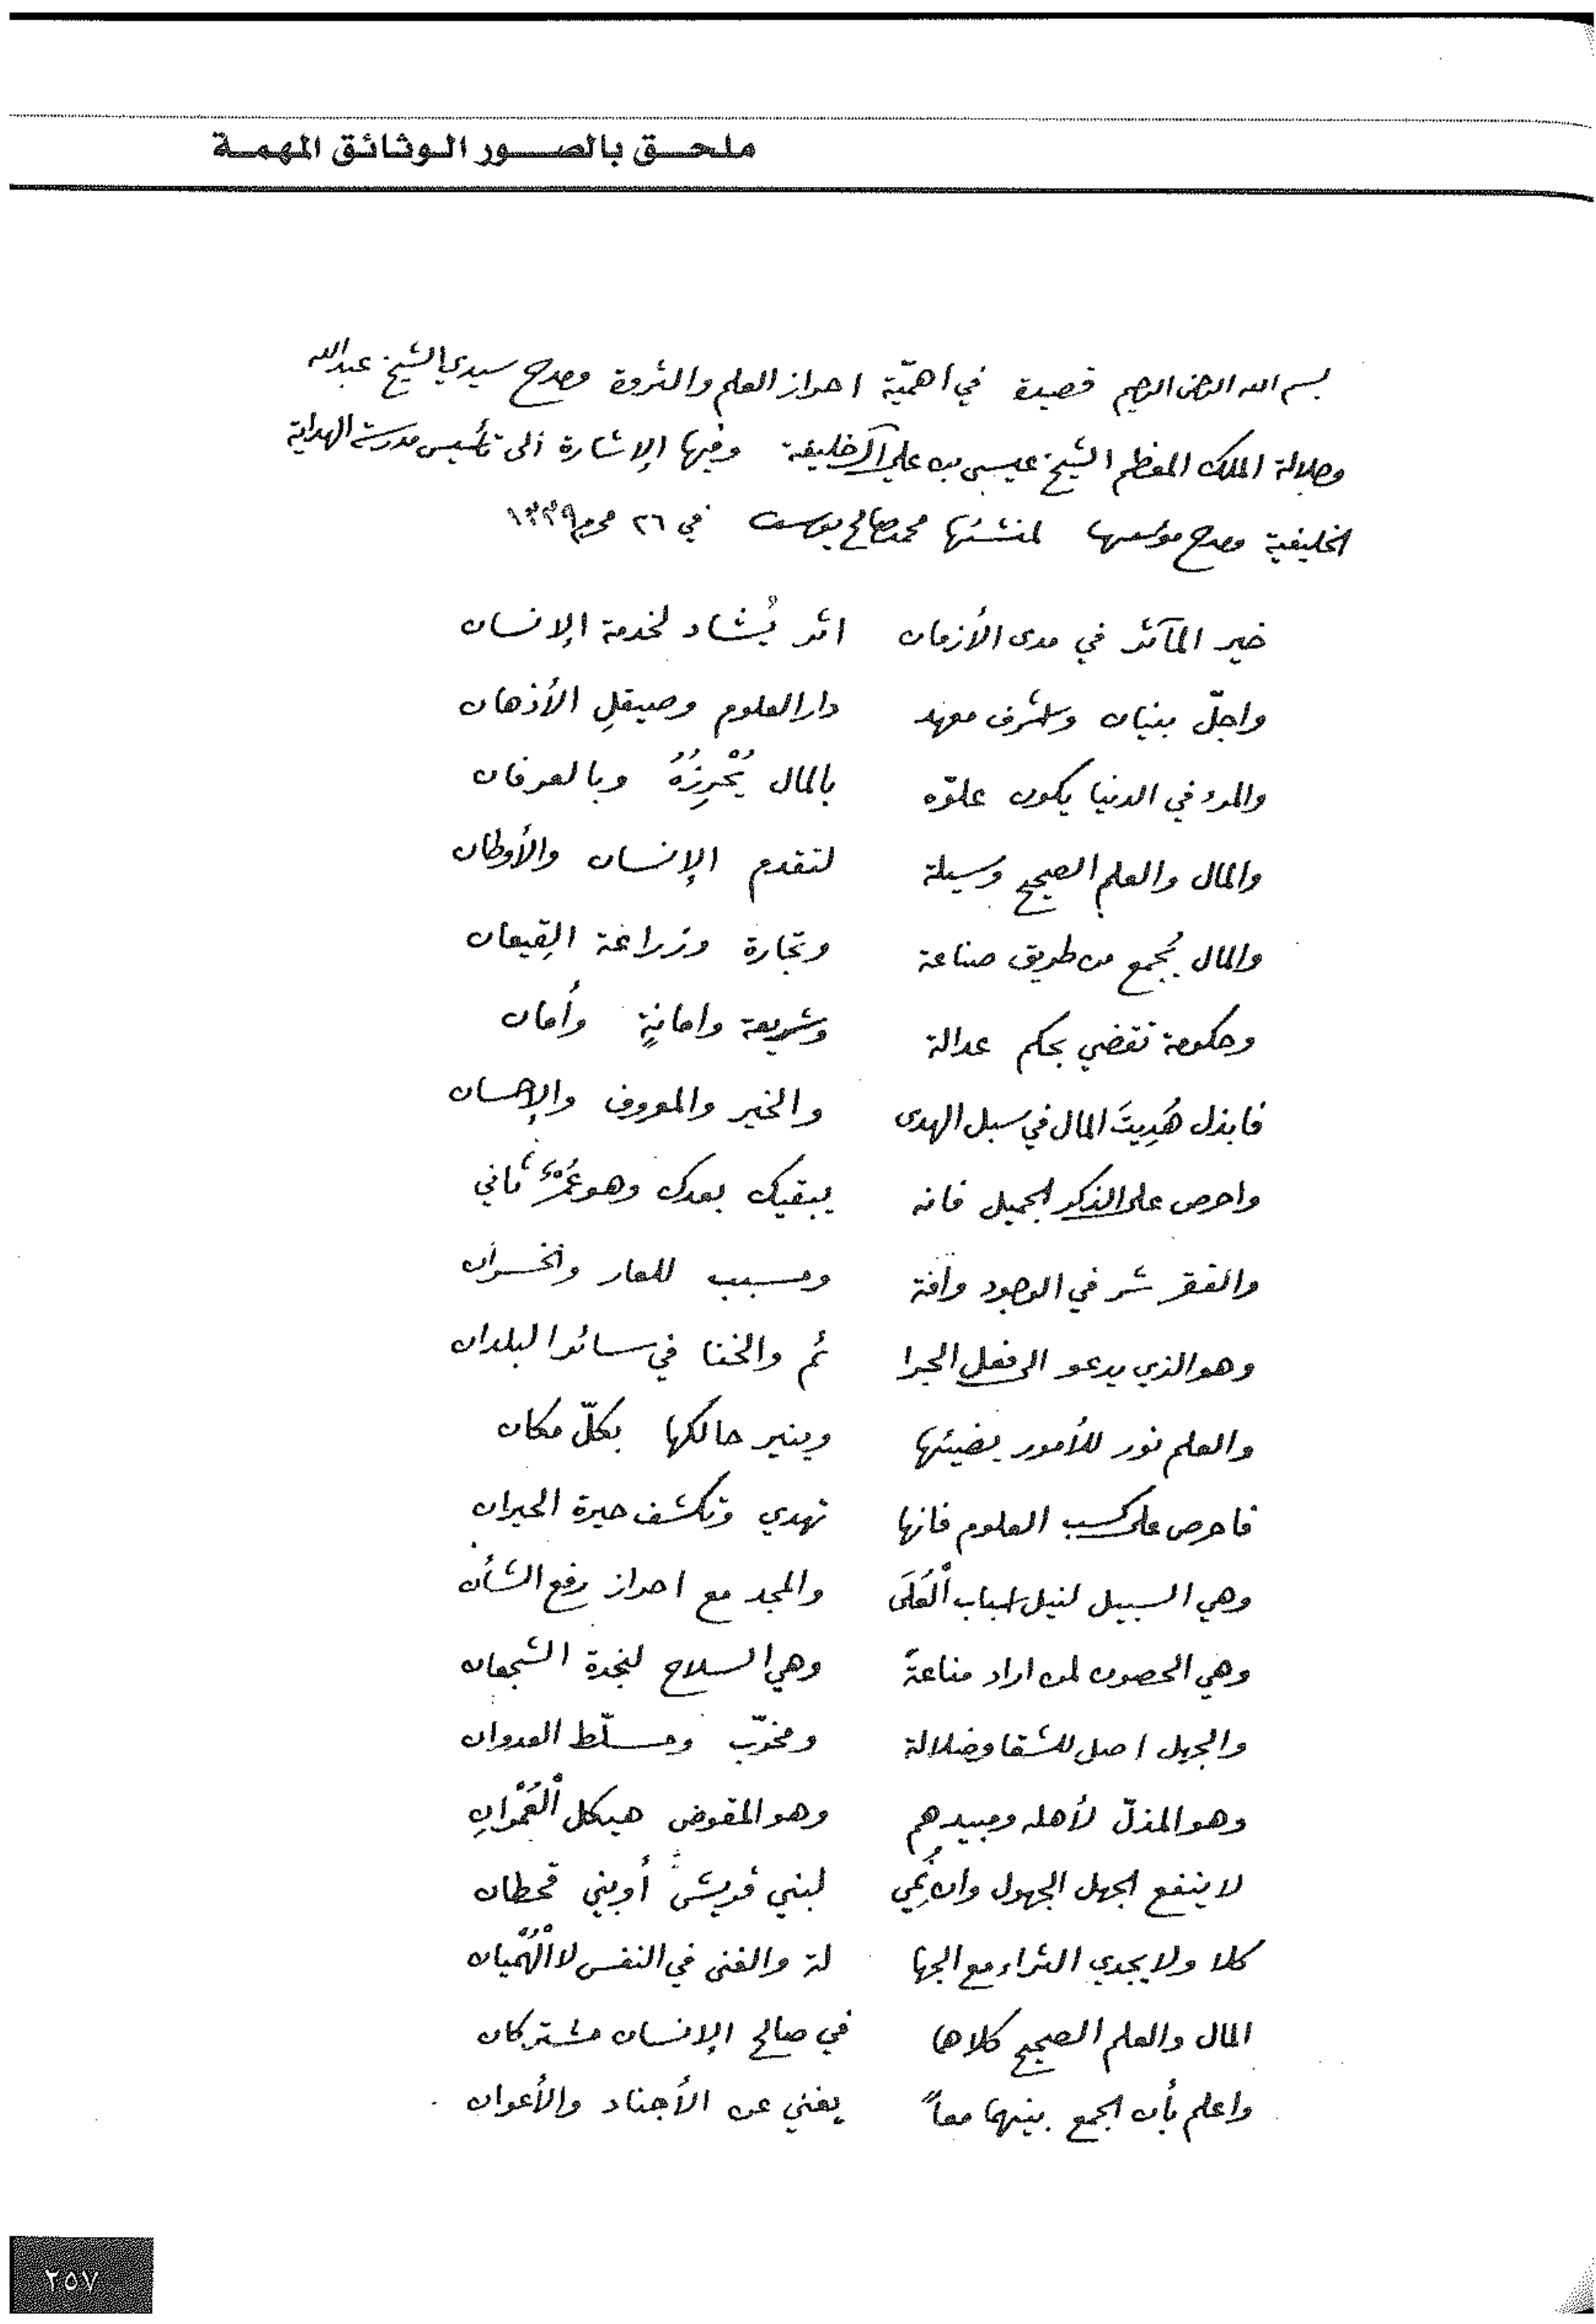 ملحق بالصور الوثائق المهمة
بسم الله الرحمن الرحيم قصيدة في اهمّية احراز العلم والثروة ومدح سيدي الشيخ عبدالله
وجلالة الملك المعظم الشيخ عيسى بن علي آل خليفة وفيها الإشارة الى تأسيس مدرسة الهداية
الخليفية ومدح مؤسسها لمنشئها محمد صالح يوسف في ٢٦ محرم ١٣٣٩
خير المآثر في مدى الأزمان اثر يُشاد لخدمة الإنسان
واجلّ بنيان واشرف معهد دار العلوم وصيقلِ الأذهان
والمرء في الدنيا يكون علوّه بالمال يُحْرِزُهُ وبالعرفان
والمال والعلم الصحيح وسيلة لتقدم الإنسان والأوطان
والمال يُجمع من طريق صناعة وتجارة وزراعة القِيعان
وحكومة تقضي بحكم عدالة وشريعة وامانةٍ وأمان
فابذل هُدِيتَ المال في سبل الهدى والخير والمعروف والإحسان
واحرص على الذكر الجميل فانه يبقيك بعدك وهو عُمْرٌ ثاني
والفقر شر في الوجود وافة ومسبب للعار والخسران
وهو الذي يدعو الى فعل الجرا ئم والخنا في سائر البلدان
والعلم نور للأمور يضيئها وينير حالكها بكلّ مكان
فاحرص على كسب العلوم فانها تهدي وتكشف حيرة الحيران
وهي السبيل لنيل اسباب الْعُلَى والمجد مع احراز رفع الشأن
وهي الحصون لمن اراد مناعةً وهي السلاح لنجدة الشجعان
والجهل اصل للشقا وضلالة ومخرّب ومسلّط العدوان
وهو المذلّ لأهله ومبيدهم وهو المقوض هيكل الْعُمْرانِ
لا ينفع الجهل الجهول وان نُمِي لبني قريش أو بني قحطان
كلا ولا يجدي الثراء مع الجها لة والغنى في النفس لا الْهُمْيان
المال والعلم الصحيح كلاهما في صالح الإنسان مشتركان
واعلم بأن الجمع بينهما معاً يغني عن الأجناد والأعوان
٢٥٧